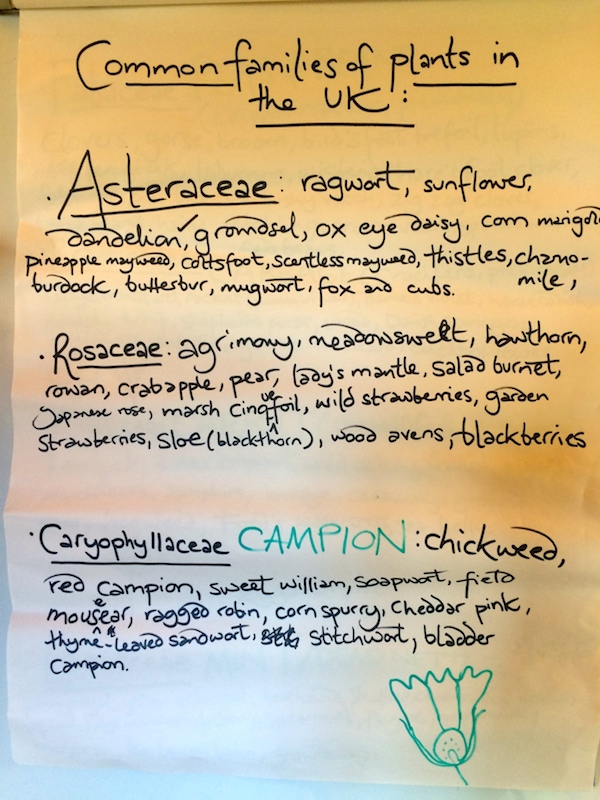 Common families of plants in
the UK:
· Asteraceae: ragwort, sunflower,
dandelion, groundsel, ox eye daisy, corn marigold
pineapple mayweed, coltsfoot, scentless mayweed, thistles, chamo-
burdock, butterbur, mugwort, fox and cubs. mile,
· Rosaceae: agrimony, meadowsweet, hawthorn,
rowan, crabapple, pear, lady's mantle, salad burnet,
Japanese rose, marsh cinquefoil, wild strawberries, garden
strawberries, sloe (blackthorn), wood avens, blackberries
· Caryophyllaceae CAMPION: chickweed,
red campion, sweet william, soapwort, field
mouse ear, ragged robin, corn spurry, Cheddar pink,
thyme-leaved sandwort, stitchwort, bladder
campion.